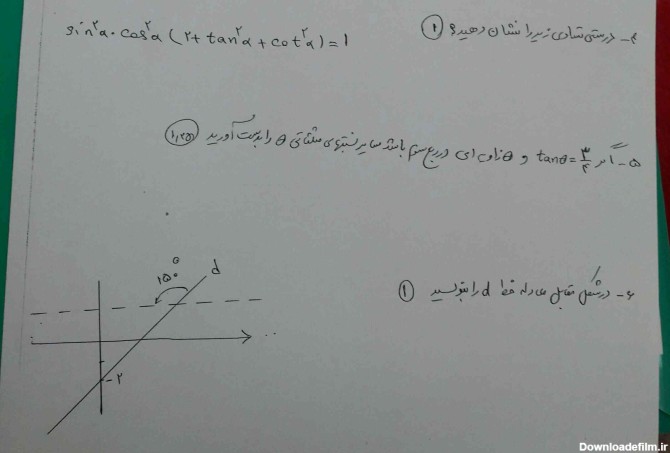 ۴- درستی تساوی زیر را نشان دهید؟ ①
sin²α · cos²α (۲ + tan²α + cot²α) = 1
۵- اگر tanθ = ۳/۴ و θ زاویه ای در ربع سوم باشد سایر نسبتهای مثلثاتی θ را بدست آورید (۱,۲۵)
۶- در شکل مقابل معادله خط d را بنویسید ①
d
۱۵۰°
-۲
Downloadefilm.ir